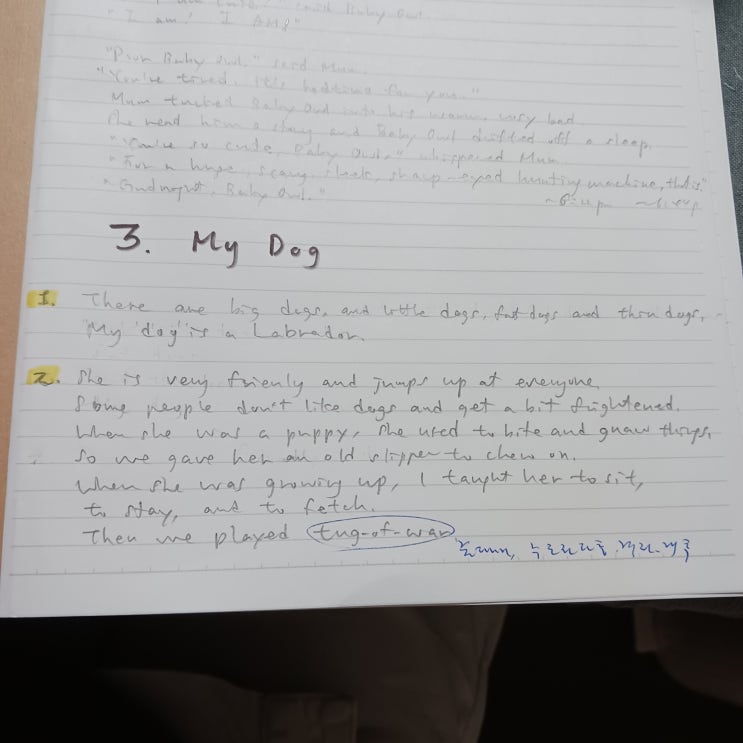 "I am! I AM!"
"Poor Baby Owl." said Mum.
"You're tired. It's bedtime for you."
Mum tucked Baby Owl into his warm, cosy bed.
She read him a story and Baby Owl drifted off a sleep.
"You're so cute, Baby Owl," whispered Mum.
"For a huge, scary, sleek, sharp-eyed hunting machine, that is."
"Goodnight, Baby Owl."
3. My Dog
1. There are big dogs, and little dogs, fat dogs and thin dogs,
My dog is a Labrador.
2. She is very frienly and jumps up at everyone.
Some people don't like dogs and get a bit frightened.
When she was a puppy, she used to bite and gnaw things,
So we gave her an old slipper to chew on.
When she was growing up, I taught her to sit,
to stay, and to fetch.
Then we played tug-of-war